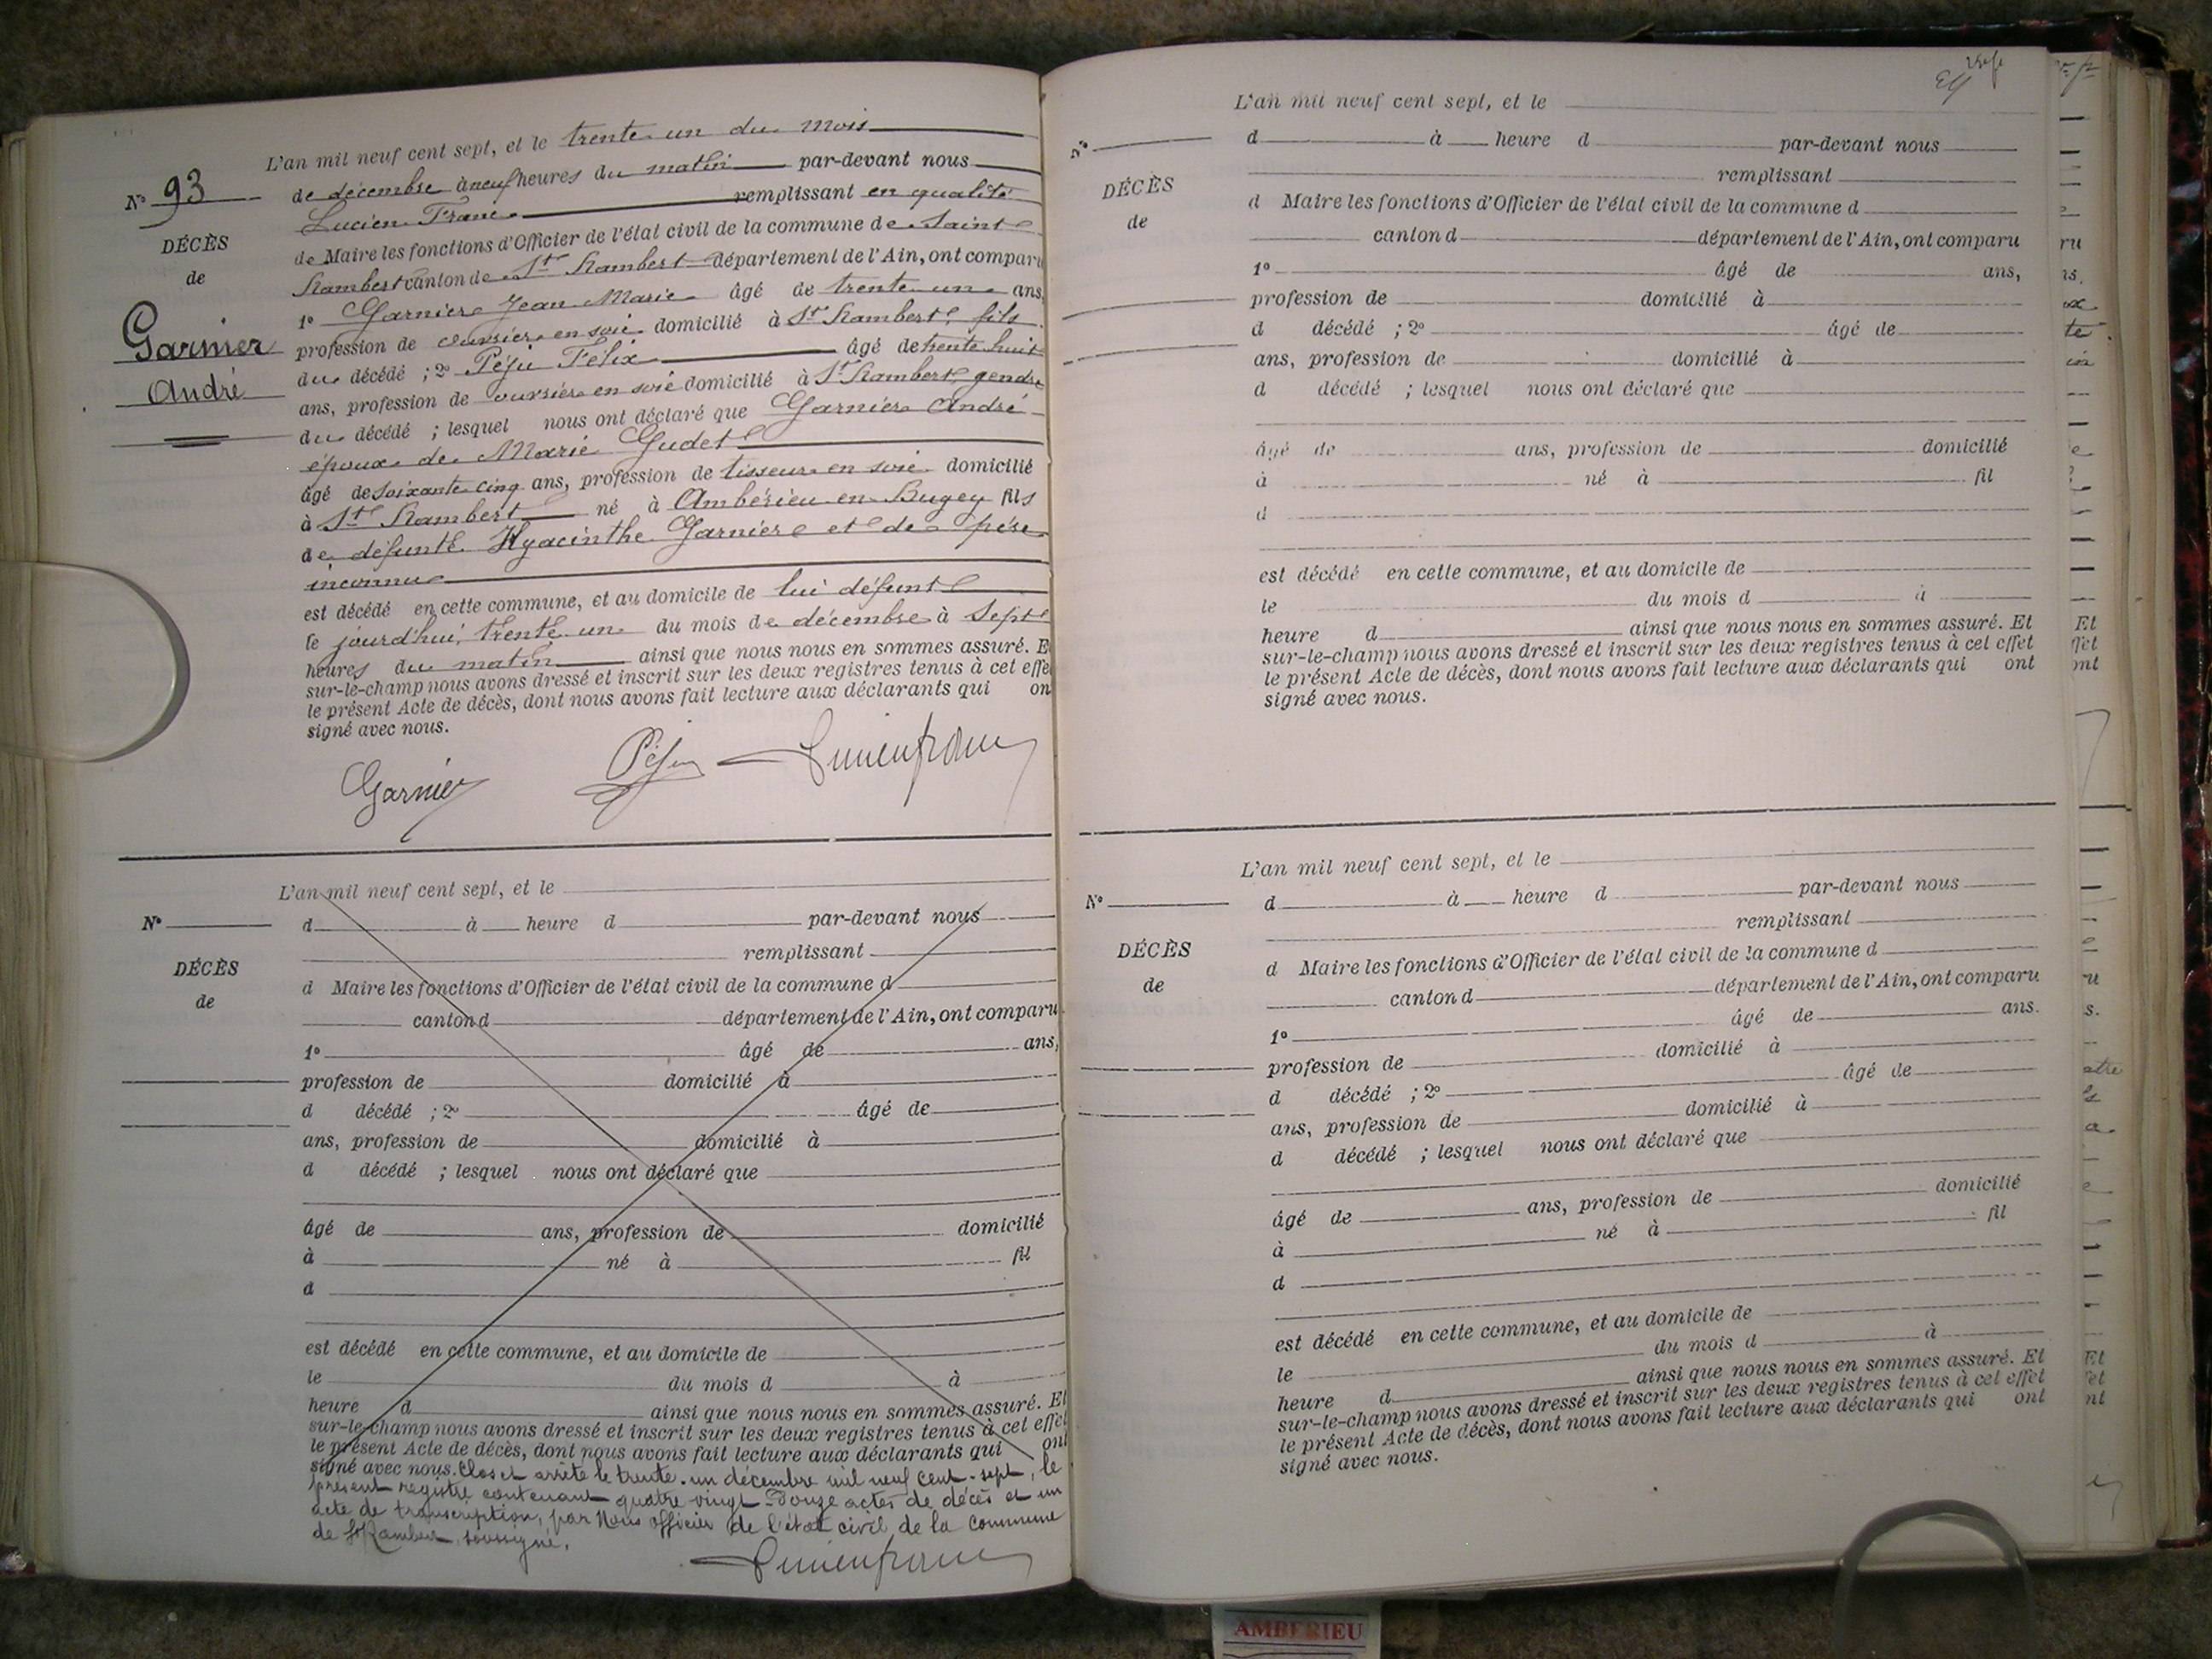 L'an mil neuf cent sept, et le trente un du mois
de décembre à neuf heures du matin par-devant nous
Lucien Franc remplissant en qualité
de Maire les fonctions d'Officier de l'état civil de la commune de Saint
Rambert canton de St Rambert département de l'Ain, ont comparu
1º Garnier Jean Marie âgé de trente un ans,
profession de ouvrier en soie domicilié à St Rambert, fils
du décédé ; 2º Péju Félix âgé de trente huit
ans, profession de ouvrier en soie domicilié à St Rambert, gendre
du décédé ; lesquel nous ont déclaré que Garnier André
époux de Marie Gudet
âgé de soixante cinq ans, profession de tisseur en soie domicilié
à St Rambert né à Ambérieu en Bugey fils
de défunte Hyacinthe Garnier et de père
inconnu
est décédé en cette commune, et au domicile de lui défunt
le jourd'hui, trente un du mois de décembre à sept
heures du matin ainsi que nous nous en sommes assuré. E
sur-le-champ nous avons dressé et inscrit sur les deux registres tenus à cet effe
le présent Acte de décès, dont nous avons fait lecture aux déclarants qui on
signé avec nous.
Nº 93
DÉCÈS
de
Garnier
André
Garnier Péju Lucien Franc
L'an mil neuf cent sept, et le
Nº
DÉCÈS
de
d à heure d par-devant nous
remplissant
d Maire les fonctions d'Officier de l'état civil de la commune d
canton d département de l'Ain, ont comparu
1º âgé de ans,
profession de domicilié à
d décédé ; 2º âgé de
ans, profession de domicilié à
d décédé ; lesquel nous ont déclaré que
âgé de ans, profession de domicilié
à né à fil
d
est décédé en cette commune, et au domicile de
le du mois d à
heure d ainsi que nous nous en sommes assuré. Et
sur-le-champ nous avons dressé et inscrit sur les deux registres tenus à cet effet
le présent Acte de décès, dont nous avons fait lecture aux déclarants qui ont
signé avec nous. Clos et arrêté le trente-un décembre mil neuf cent-sept, le
présent registre contenant quatre vingt-Douze actes de décès et un
acte de transcription, par Nous officier de l'état civil de la commune
de St Rambert soussigné.
Lucien Franc
L'an mil neuf cent sept, et le
Nº
DÉCÈS
de
d à heure d par-devant nous
remplissant
d Maire les fonctions d'Officier de l'état civil de la commune d
canton d département de l'Ain, ont comparu
1º âgé de ans,
profession de domicilié à
d décédé ; 2º âgé de
ans, profession de domicilié à
d décédé ; lesquel nous ont déclaré que
âgé de ans, profession de domicilié
à né à fil
d
est décédé en cette commune, et au domicile de
le du mois d à
heure d ainsi que nous nous en sommes assuré. Et
sur-le-champ nous avons dressé et inscrit sur les deux registres tenus à cet effet
le présent Acte de décès, dont nous avons fait lecture aux déclarants qui ont
signé avec nous.
L'an mil neuf cent sept, et le
Nº
DÉCÈS
de
d à heure d par-devant nous
remplissant
d Maire les fonctions d'Officier de l'état civil de la commune d
canton d département de l'Ain, ont comparu
1º âgé de ans.
profession de domicilié à
d décédé ; 2º âgé de
ans, profession de domicilié à
d décédé ; lesquel nous ont déclaré que
âgé de ans, profession de domicilié
à né à fil
d
est décédé en cette commune, et au domicile de
le du mois d à
heure d ainsi que nous nous en sommes assuré. Et
sur-le-champ nous avons dressé et inscrit sur les deux registres tenus à cet effet
le présent Acte de décès, dont nous avons fait lecture aux déclarants qui ont
signé avec nous.
AMBERIEU